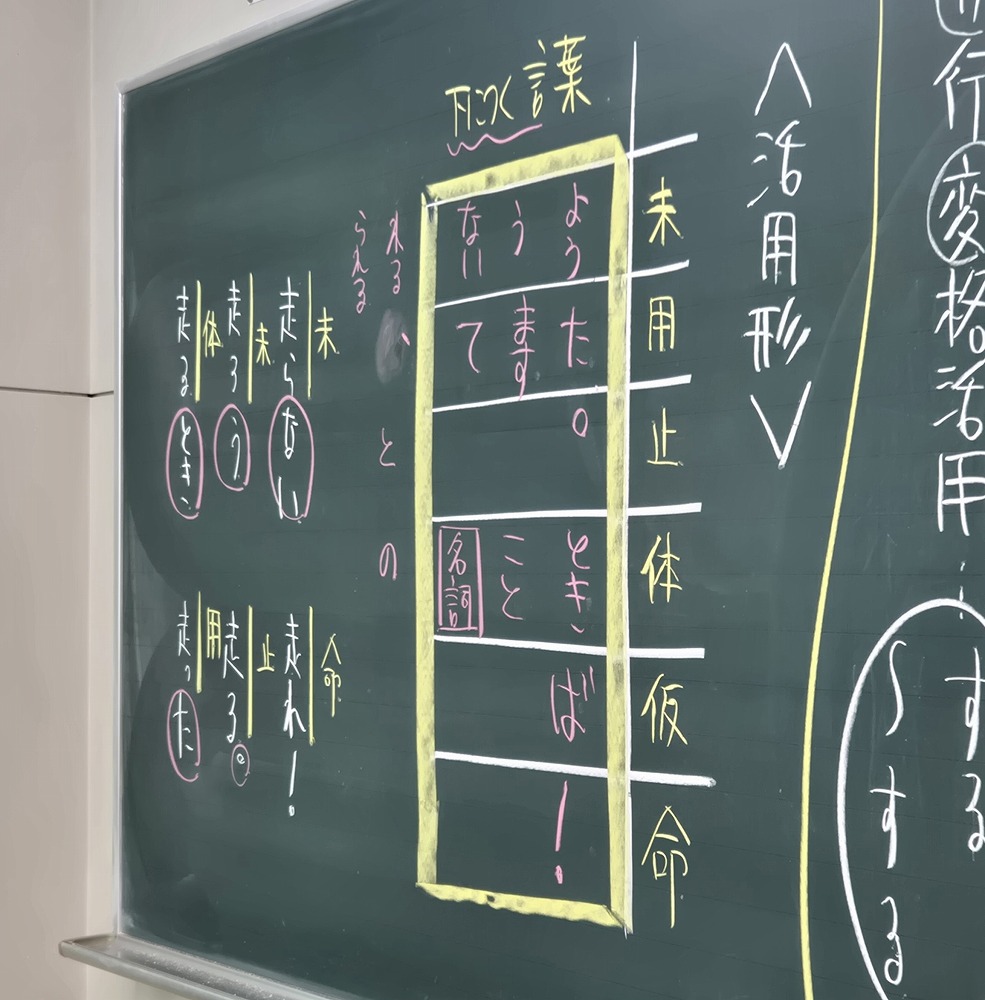 行変格活用…
する
〜する
〈活用形〉
未
用
止
体
仮
命
下につく言葉
よう
う
ない
た
ます
て
。
とき、
こと
名詞
ば
!
れる、
られる
と
の
未
走らない
未
走ろう
体
走るとき、
命
走れ!
止
走る。
用
走った